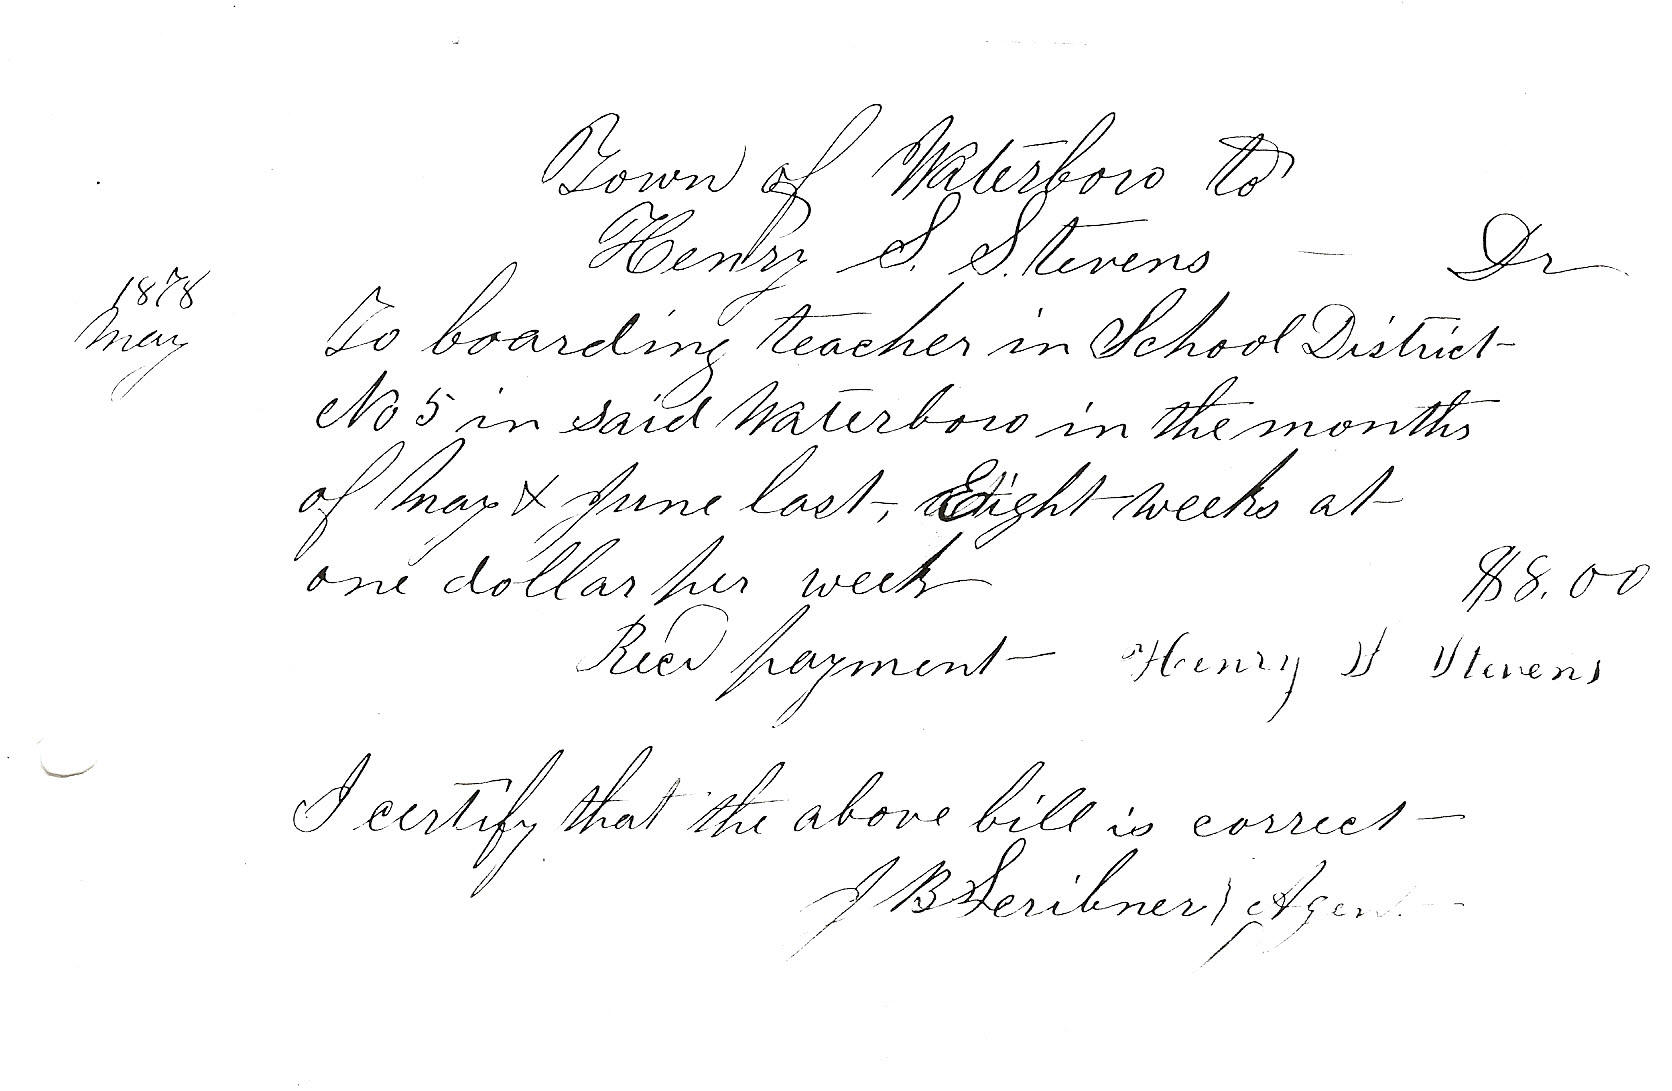 Town of Waterboro to
Henry S. Stevens — Dr
1878
May
To boarding teacher in School District
No 5 in said Waterboro in the months
of May & June last, Eight weeks at
one dollar per week $8.00
Recd payment Henry S Stevens
I certify that the above bill is correct
J B Scribner, Agent